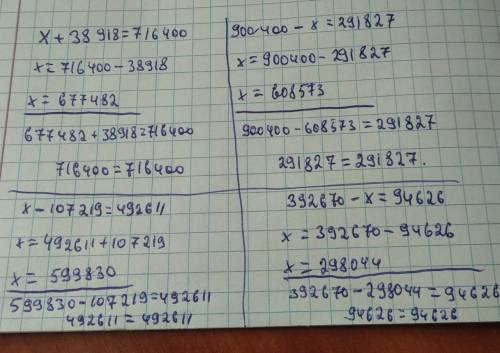 x + 38918 = 716400
x = 716400 - 38918
x = 677482
677482 + 38918 = 716400
716400 = 716400
900400 - x = 291827
x = 900400 - 291827
x = 608573
900400 - 608573 = 291827
291827 = 291827.
x - 107219 = 492611
x = 492611 + 107219
x = 599830
599830 - 107219 = 492611
492611 = 492611
392670 - x = 94626
x = 392670 - 94626
x = 298044
392670 - 298044 = 94626
94626 = 94626